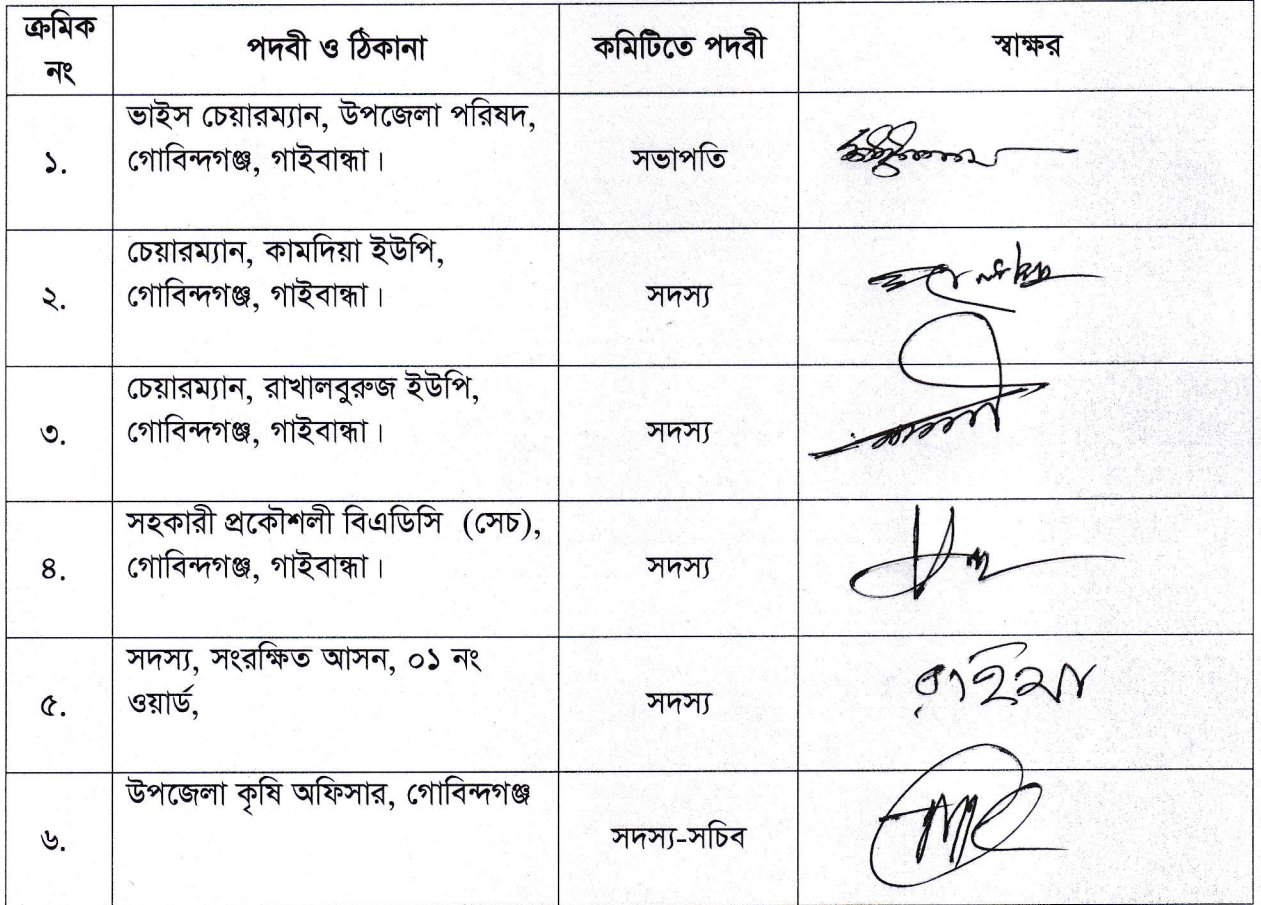 ক্রমিক নং পদবী ও ঠিকানা কমিটিতে পদবী স্বাক্ষর
ভাইস চেয়ারম্যান, উপজেলা পরিষদ,
১. গোবিন্দগঞ্জ, গাইবান্ধা। সভাপতি
চেয়ারম্যান, কামদিয়া ইউপি,
২. গোবিন্দগঞ্জ, গাইবান্ধা। সদস্য
চেয়ারম্যান, রাখালবুরুজ ইউপি,
৩. গোবিন্দগঞ্জ, গাইবান্ধা। সদস্য
সহকারী প্রকৌশলী বিএডিসি (সেচ),
৪. গোবিন্দগঞ্জ, গাইবান্ধা। সদস্য
সদস্য, সংরক্ষিত আসন, ০১ নং
৫. ওয়ার্ড, সদস্য
উপজেলা কৃষি অফিসার, গোবিন্দগঞ্জ
৬. সদস্য-সচিব